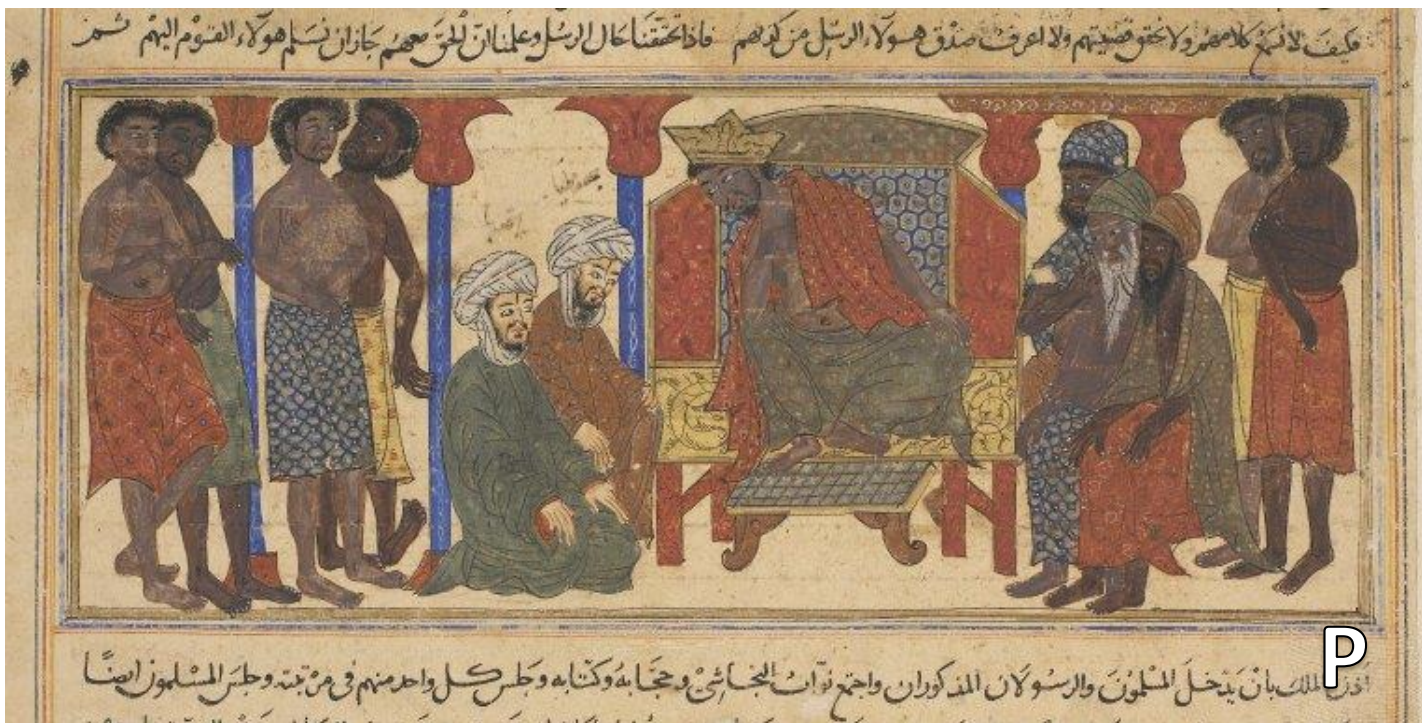 فكيف لا نسمع كلامهم ولا نحقق قضيتهم ولا اعرف صدق هولاء الرسل من كذبهم فاذا تحققنا حال الرسل وعلمنا ان الحق معهم جاز ان نسلم هولاء القوم اليهم ثم
اذن الملك بان يدخل المسلمون والرسولان المذكوران واجتمع نواب النجاشي وحجابه وكتابه وجلس كل واحد منهم في مرتبته وجلس المسلمون ايضًا
P